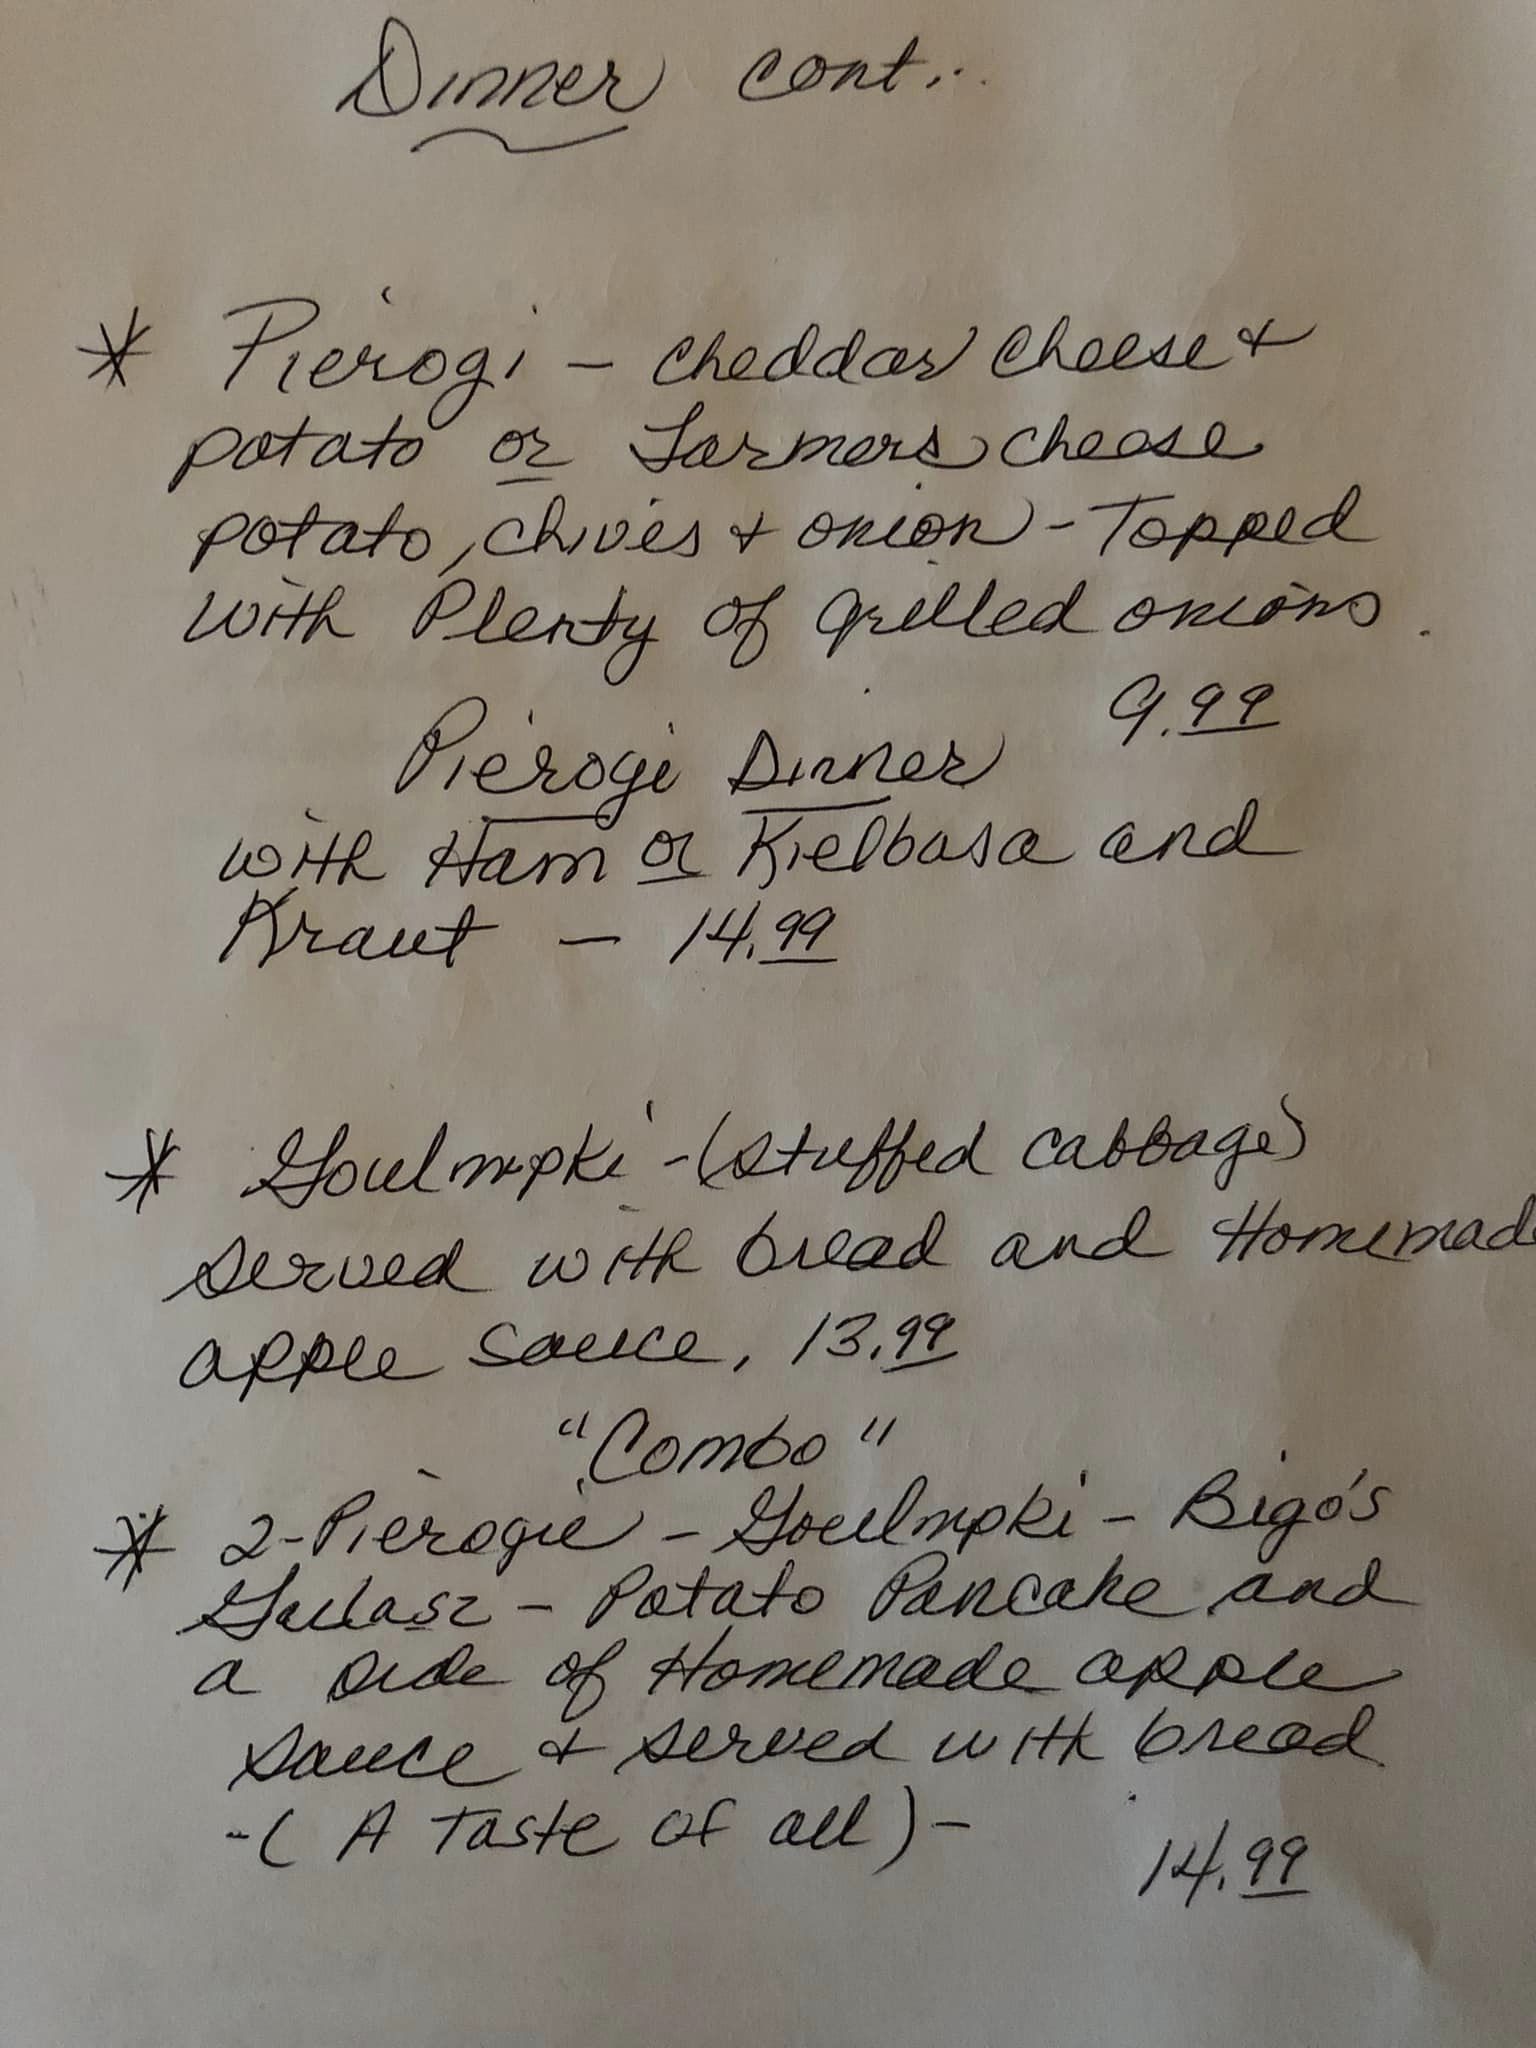 Dinner cont...
* Pierogi - cheddar cheese +
potato or Farmers cheese
potato, chives + onion - Topped
with Plenty of grilled onions.
9.99
Pierogi Dinner
with Ham or Kielbasa and
Kraut - 14.99
* Goulmpki - (stuffed cabbage)
served with bread and Homemade
apple sauce, 13.99
"Combo"
* 2-Pierogie - Goulmpki - Bigo's
Gulasz - Potato Pancake and
a side of Homemade apple
sauce + served with bread
-( A Taste of all )-
14.99